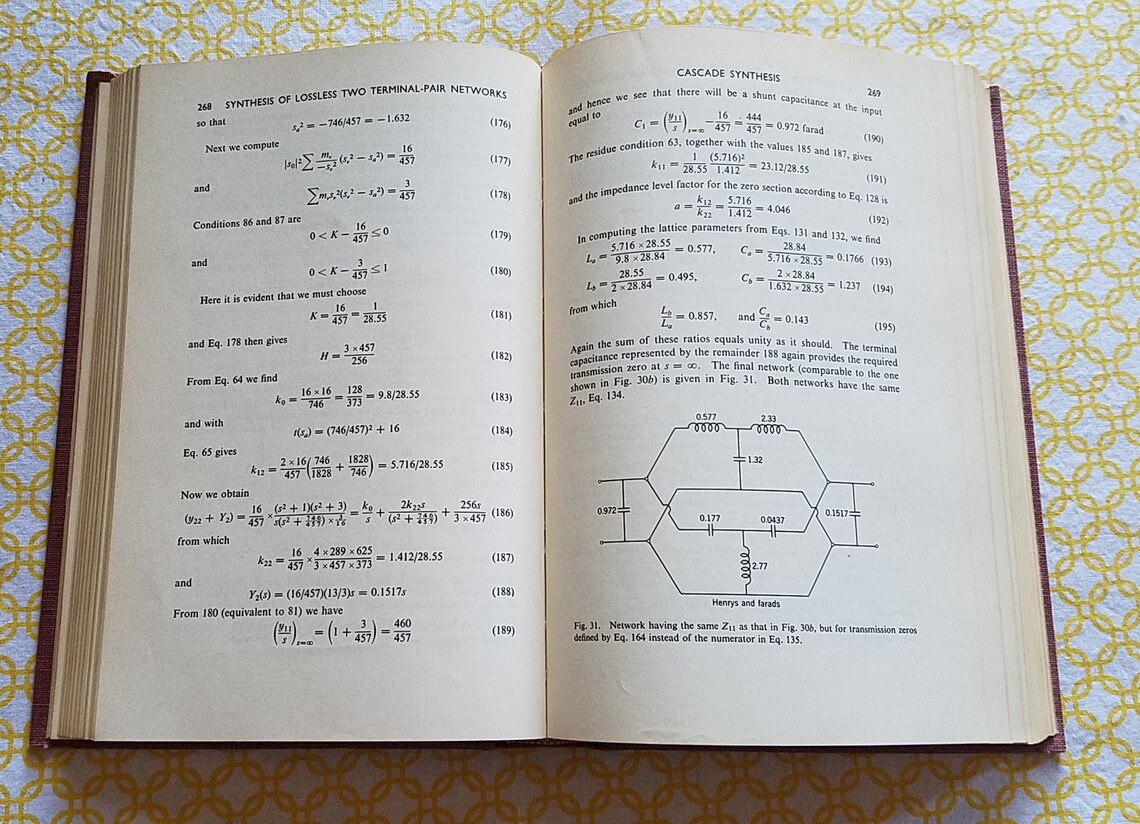 268 SYNTHESIS OF LOSSLESS TWO TERMINAL-PAIR NETWORKS
so that
sₐ² = −746/457 = −1.632 (176)
Next we compute
|s₀|² ∑ mᵥ/−sᵥ² (sᵥ² − sₐ²) = 16/457 (177)
and
∑ mᵥsᵥ²(sᵥ² − sₐ²) = 3/457 (178)
Conditions 86 and 87 are
0 < K − 16/457 ≤ 0 (179)
and
0 < K − 3/457 ≤ 1 (180)
Here it is evident that we must choose
K = 16/457 = 1/28.55 (181)
and Eq. 178 then gives
H = 3 × 457/256 (182)
From Eq. 64 we find
k₀ = 16 × 16/746 = 128/373 = 9.8/28.55 (183)
and with
t(sₐ) = (746/457)² + 16 (184)
Eq. 65 gives
k₁₂ = 2 × 16/457 (746/1828 + 1828/746) = 5.716/28.55 (185)
Now we obtain
(y₂₂ + Y₂) = 16/457 × (s² + 1)(s² + 3)/s(s² + 746/457) × 3/16 = k₀/s + 2k₂₂s/(s² + 746/457) + 256s/3 × 457 (186)
from which
k₂₂ = 16/457 × 4 × 289 × 625/3 × 457 × 373 = 1.412/28.55 (187)
and
Y₂(s) = (16/457)(13/3)s = 0.1517s (188)
From 180 (equivalent to 81) we have
(y₁₁/s)ₛ₌∞ = (1 + 3/457) = 460/457 (189)
CASCADE SYNTHESIS 269
and hence we see that there will be a shunt capacitance at the input
equal to
C₁ = (y₁₁/s)ₛ₌∞ − 16/457 = 444/457 = 0.972 farad (190)
The residue condition 63, together with the values 185 and 187, gives
k₁₁ = 1/28.55 (5.716)²/1.412 = 23.12/28.55 (191)
and the impedance level factor for the zero section according to Eq. 128 is
a = k₁₂/k₂₂ = 5.716/1.412 = 4.046 (192)
In computing the lattice parameters from Eqs. 131 and 132, we find
Lₐ = 5.716 × 28.55/9.8 × 28.84 = 0.577, Cₐ = 28.84/5.716 × 28.55 = 0.1766 (193)
L_b = 28.55/2 × 28.84 = 0.495, C_b = 2 × 28.84/1.632 × 28.55 = 1.237 (194)
from which
L_b/Lₐ = 0.857, and Cₐ/C_b = 0.143 (195)
Again the sum of these ratios equals unity as it should. The terminal
capacitance represented by the remainder 188 again provides the required
transmission zero at s = ∞. The final network (comparable to the one
shown in Fig. 30b) is given in Fig. 31. Both networks have the same
Z₁₁, Eq. 134.
0.577 2.33
1.32
0.972 0.1517
0.177 0.0437
2.77
Henrys and farads
Fig. 31. Network having the same Z₁₁ as that in Fig. 30b, but for transmission zeros
defined by Eq. 164 instead of the numerator in Eq. 135.